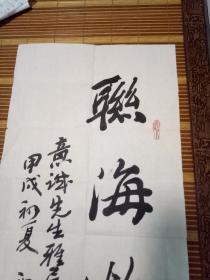 聯海
意誠先生雅
甲戌初夏